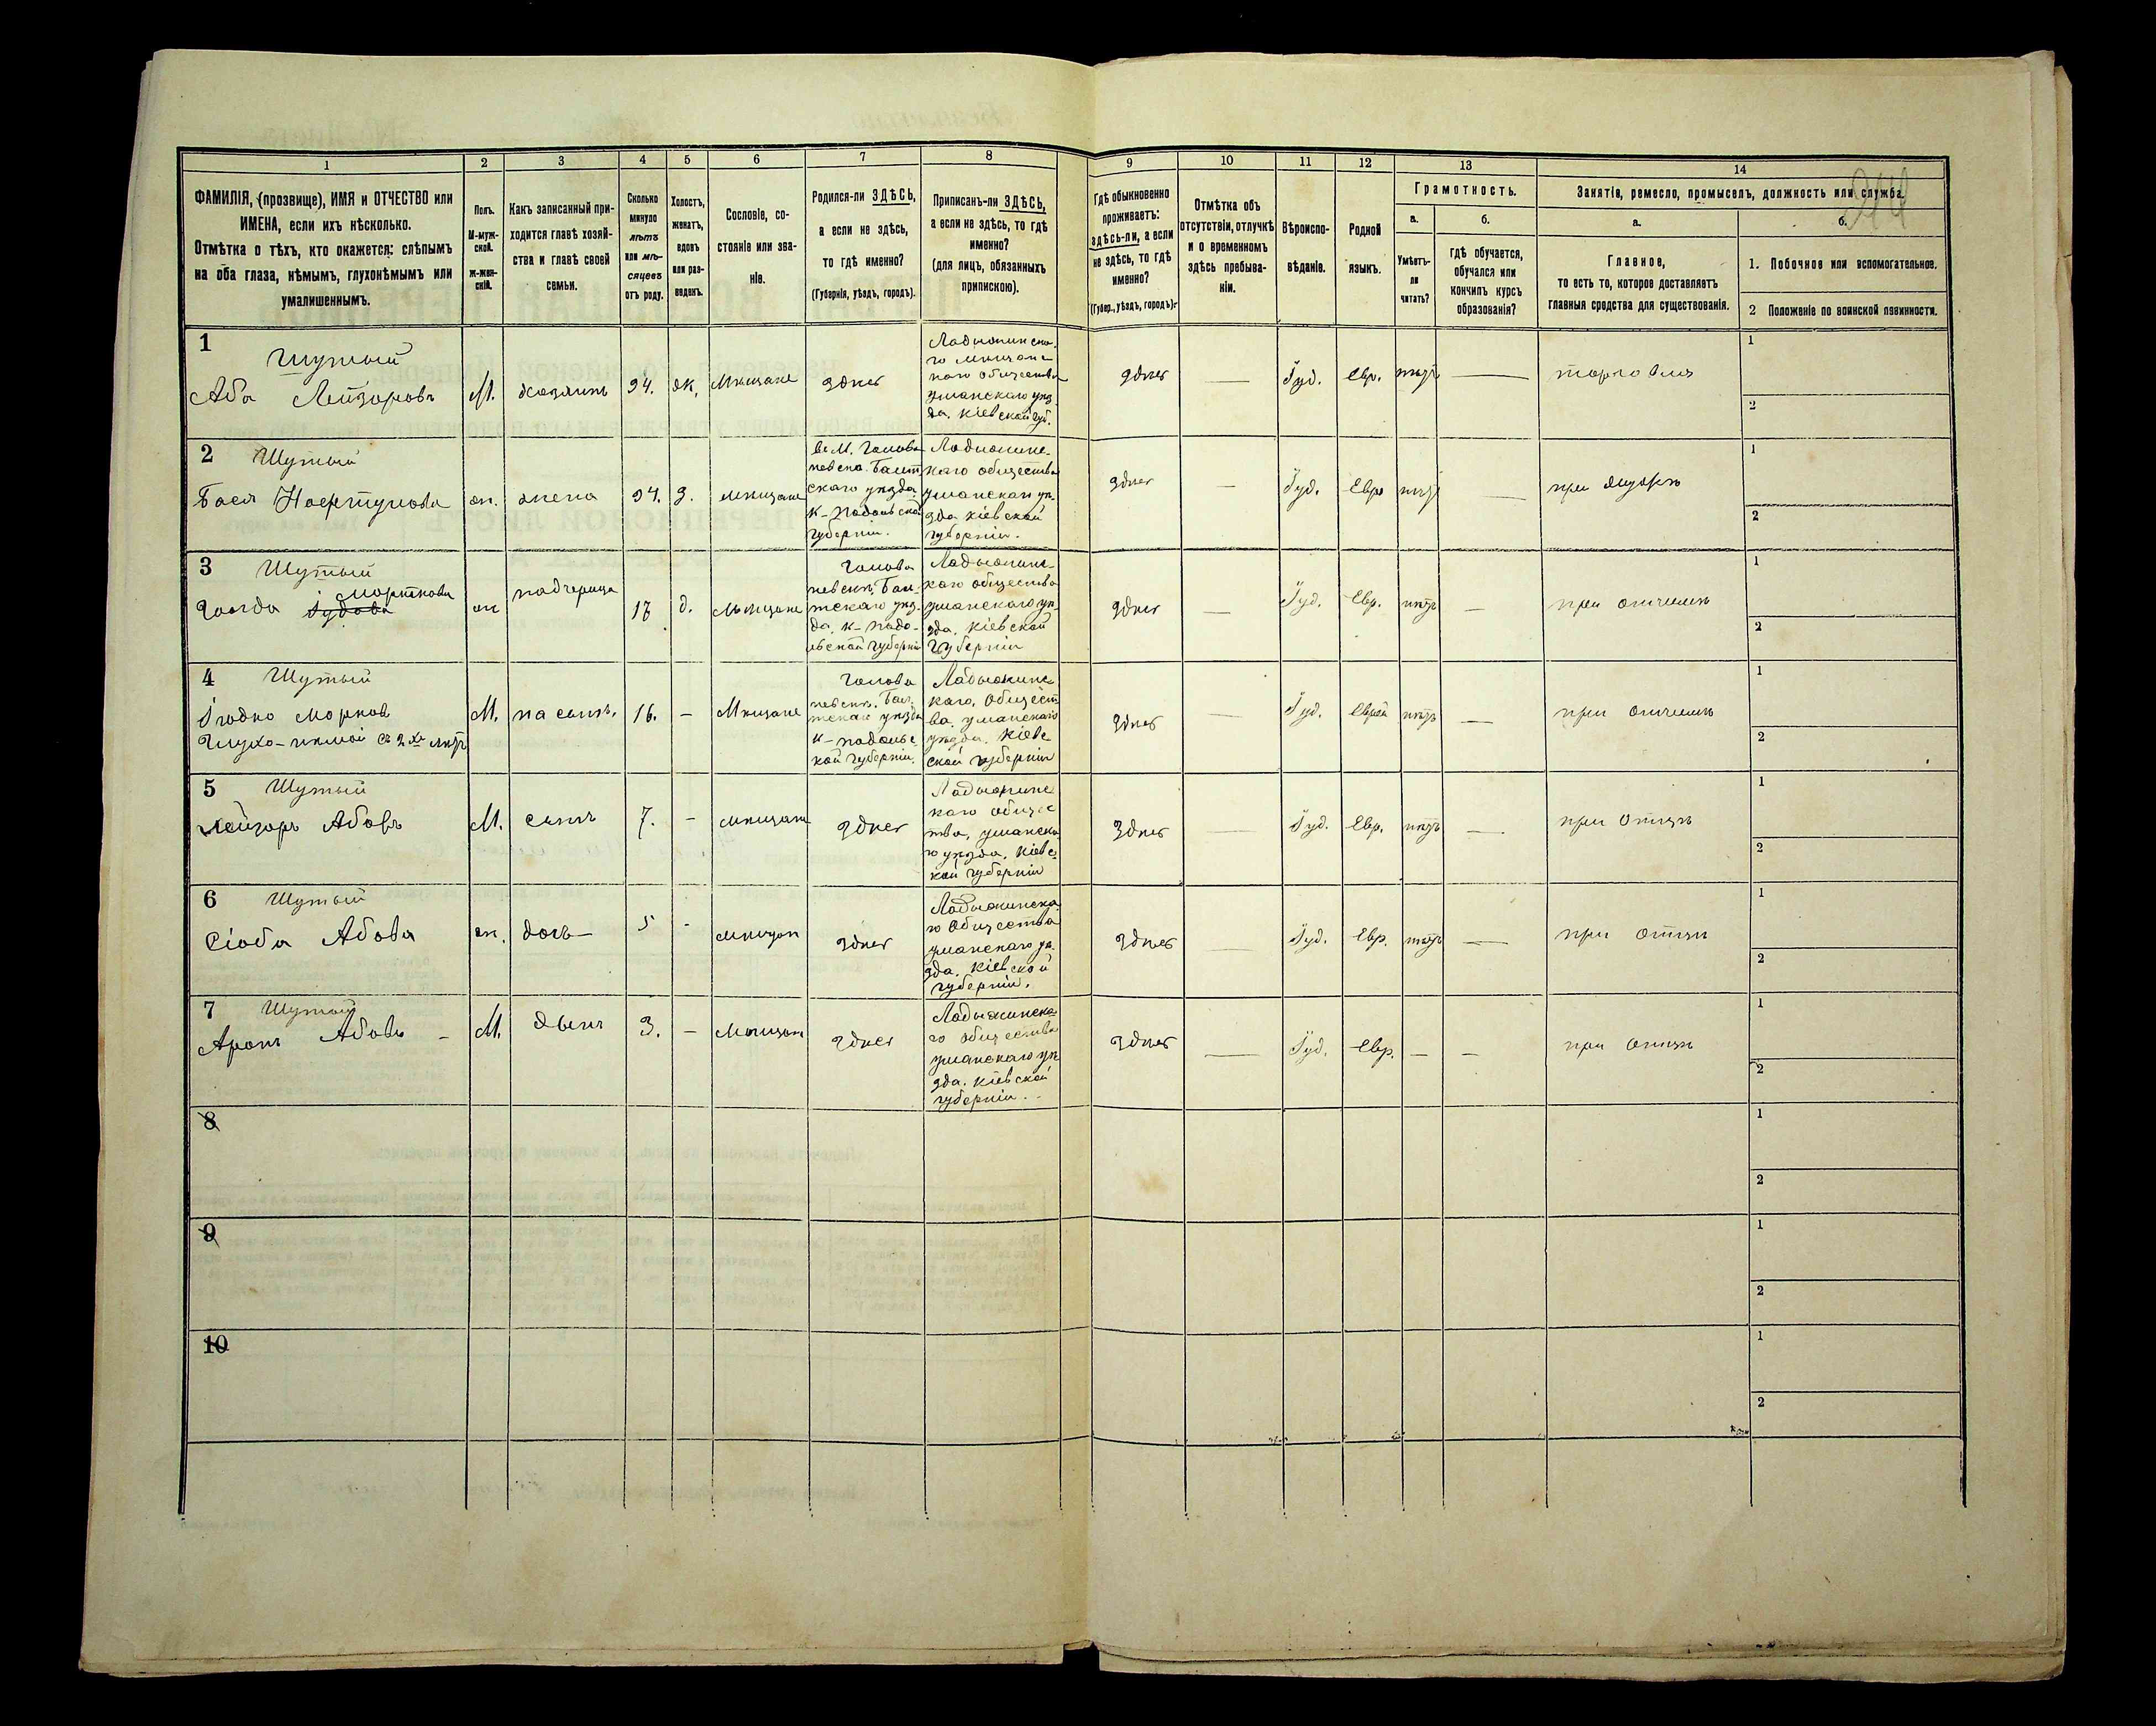 1 2 3 4 5 6 7 8 9 10 11 12 13 14
ФАМИЛІЯ, (прозвище), ИМЯ и ОТЧЕСТВО или
ИМЕНА, если ихъ нѣсколько.
Отмѣтка о тѣхъ, кто окажется: слѣпымъ
на оба глаза, нѣмымъ, глухонѣмымъ или
умалишеннымъ.
Полъ.
М-муж-
ской.
ж-жен-
скій.
Какъ записанный при-
ходится главѣ хозяй-
ства и главѣ своей
семьи.
Сколько
минуло
лѣтъ
или мѣ-
сяцевъ
отъ роду.
Холостъ,
женатъ,
вдовъ
или раз-
веденъ.
Сословіе, со-
стояніе или зва-
ніе.
Родился-ли ЗДѢСЬ,
а если не здѣсь,
то гдѣ именно?
(Губернія, уѣздъ, городъ).
Приписанъ-ли ЗДѢСЬ,
а если не здѣсь, то гдѣ
именно?
(для лицъ, обязанныхъ
припискою).
Гдѣ обыкновенно
проживаетъ:
здѣсь-ли, а если
не здѣсь, то гдѣ
именно?
(Губер., уѣздъ, городъ).
Отмѣтка объ
отсутствіи, отлучкѣ
и о временномъ
здѣсь пребыва-
ніи.
Вѣроиспо-
вѣданіе.
Родной
языкъ.
Грамотность.
а.
Умѣетъ-
ли
читать?
б.
Гдѣ обучается,
обучался или
кончилъ курсъ
образованія?
Занятіе, ремесло, промыселъ, должность или служба.
а.
Главное,
то есть то, которое доставляетъ
главныя средства для существованія.
б.
1. Побочное или вспомогательное.
2 Положеніе по воинской повинности.
1
Шутый
Аба Лейзоровъ
М.
хозяинъ
94.
ж.
Мѣщане
здѣсь
Ладыжинска-
го мѣщанс-
каго общества
уманскаго уѣз-
да, кіевской губ.
здѣсь
—
Іуд.
Евр.
нѣтъ
—
торговля
1
2
2
Шутый
Бася Нафтулова
ж.
жена
94.
З.
мѣщане
въ М. Голова-
невска. Балт
скаго уѣзда
к-Подольской
губерніи.
Ладыжинс-
каго общества
уманскаго уѣ-
зда кіевской
губерніи.
здѣсь
—
Іуд.
Евр
нѣтъ
—
при мужѣ
1
2
3
Шутый
Морткова
Голда Іудова
ж
падчерица
17
д.
Мѣщане
Голова
невскѣ. Бал-
тскаго уѣз-
да, к-подо-
льской губерніи
Ладыжинс-
каго общества
уманскаго уѣ-
зда, кіевской
губерніи
здѣсь
—
Іуд.
Евр.
нѣтъ
—
при отчимѣ
1
2
4
Шутый
Іодко Морков
Глухо-нѣмой съ 2хъ лѣтъ
М.
пасынъ.
16.
—
Мѣщане
Голова
невскъ. Бал-
тскаго уѣзда
к-подольс-
кой губерніи.
Ладыжинс
каго, Общест
ва, уманскаго
уѣзда. Кіевс
ской губерніи
здѣсь
—
Іуд.
Еврей
нѣтъ
—
при отчимѣ
1
2
5
Шутый
Лейзоръ Абовъ
М.
сынъ
7.
-
мѣщане
здѣсь
Ладыжинс
каго общес
тва, уманска
го уѣзда, Кіевс-
кой губерніи
Здѣсь
—
Іуд.
Евр.
нѣтъ
—
при Отцѣ
1
2
6
Шутый
Сіоба Абова
ж.
дочь—
5
-
мѣщан
здѣсь
Ладыжинска
го Общества
уманскаго уѣ-
зда. Кіевской
губерніи.
Здѣсь
—
Іуд.
Евр.
нѣтъ
—
при отцѣ
1
2
7
Шутый
Аронъ Абовъ -
М.
Сынъ
3.
—
Мѣщан
здѣсь
Ладыжинска
го общества
уманскаго уѣ
зда. Кіевской
губерніи.
Здѣсь
—
Іуд.
Евр.
—
—
при Отцѣ
1
2
8
1
2
9
1
2
10
1
2